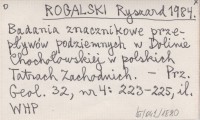 ROGALSKI Ryszard 1984.
Badania znacznikowe prze-
pływów podziemnych w Dolinie
Chochołowskiej w polskich
Tatrach Zachodnich. - Prz.
Geol. 32, nr 4: 223-225, il.
WHP